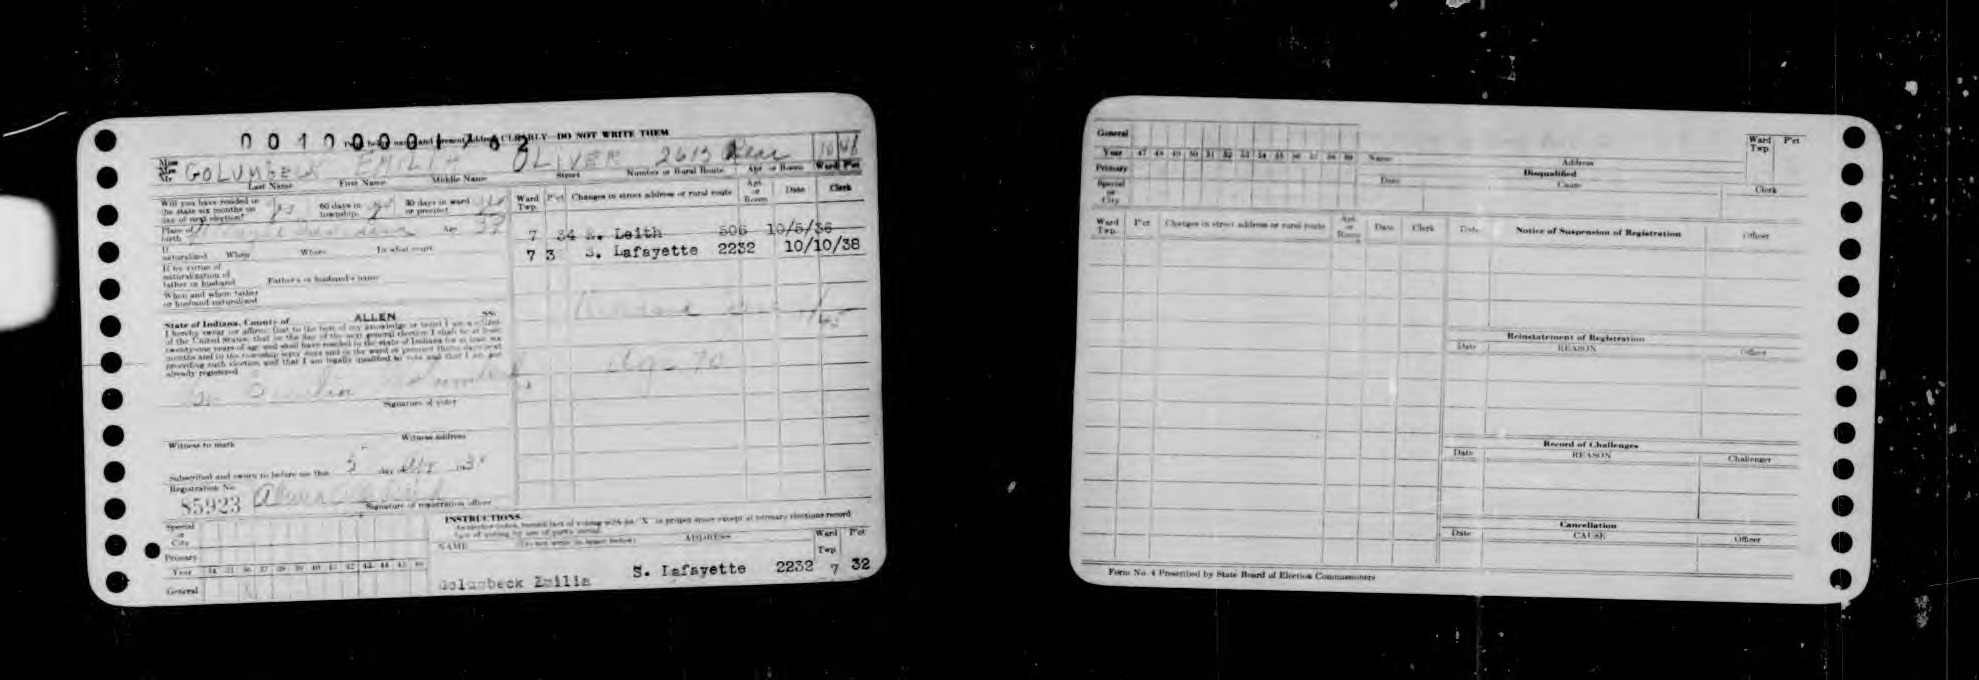 00100001762
Print below name and present address CLEARLY—DO NOT WRITE THEM
GOLUMBECK EMILIA OLIVER 2613 Rear 10 48
Last Name First Name Middle Name Street Number or Rural Route Apt or Room Ward P'ct
Will you have resided in the state six months on day of next election? Yes 60 days in township 30 days in ward or precinct
Place of birth Age 37
If naturalized When Where In what court
If by virtue of naturalization of father or husband Father's or husband's name
When and where father or husband naturalized
State of Indiana, County of ALLEN SS:
I hereby swear (or affirm) that to the best of my knowledge or belief I am a citizen
of the United States, that on the day of the next general election I shall be at least
twenty-one years of age and shall have resided in the state of Indiana for at least six
months and in the township sixty days and in the ward or precinct thirty days next
preceding such election and that I am legally qualified to vote and that I am not
already registered
Signature of voter
Witness to mark Witness address
Subscribed and sworn to before me this 5 day of
Registration No.
85923
Signature of registration officer
Ward Twp. P'ct Changes in street address or rural route Apt. or Room Date Clerk
7 34 E. Leith 506 10/5/36
7 3 S. Lafayette 2232 10/10/38
Special or City
Primary
Year 34 35 36 37 38 39 40 41 42 43 44 45 46
General
INSTRUCTIONS
NAME ADDRESS Ward Twp. P'ct
Golumbeck Emilia S. Lafayette 2232 7 32
General
Year 47 48 49 50 51 52 53 54 55 56 57 58 59 Name Address Ward Twp. P'ct
Primary Disqualified
Special or City Date Cause Clerk
Ward Twp. P'ct Changes in street address or rural route Apt. or Room Date Clerk
Date Notice of Suspension of Registration Officer
Reinstatement of Registration
Date REASON Officer
Record of Challenges
Date REASON Challenger
Cancellation
Date CAUSE Officer
Form No. 4 Prescribed by State Board of Election Commissioners